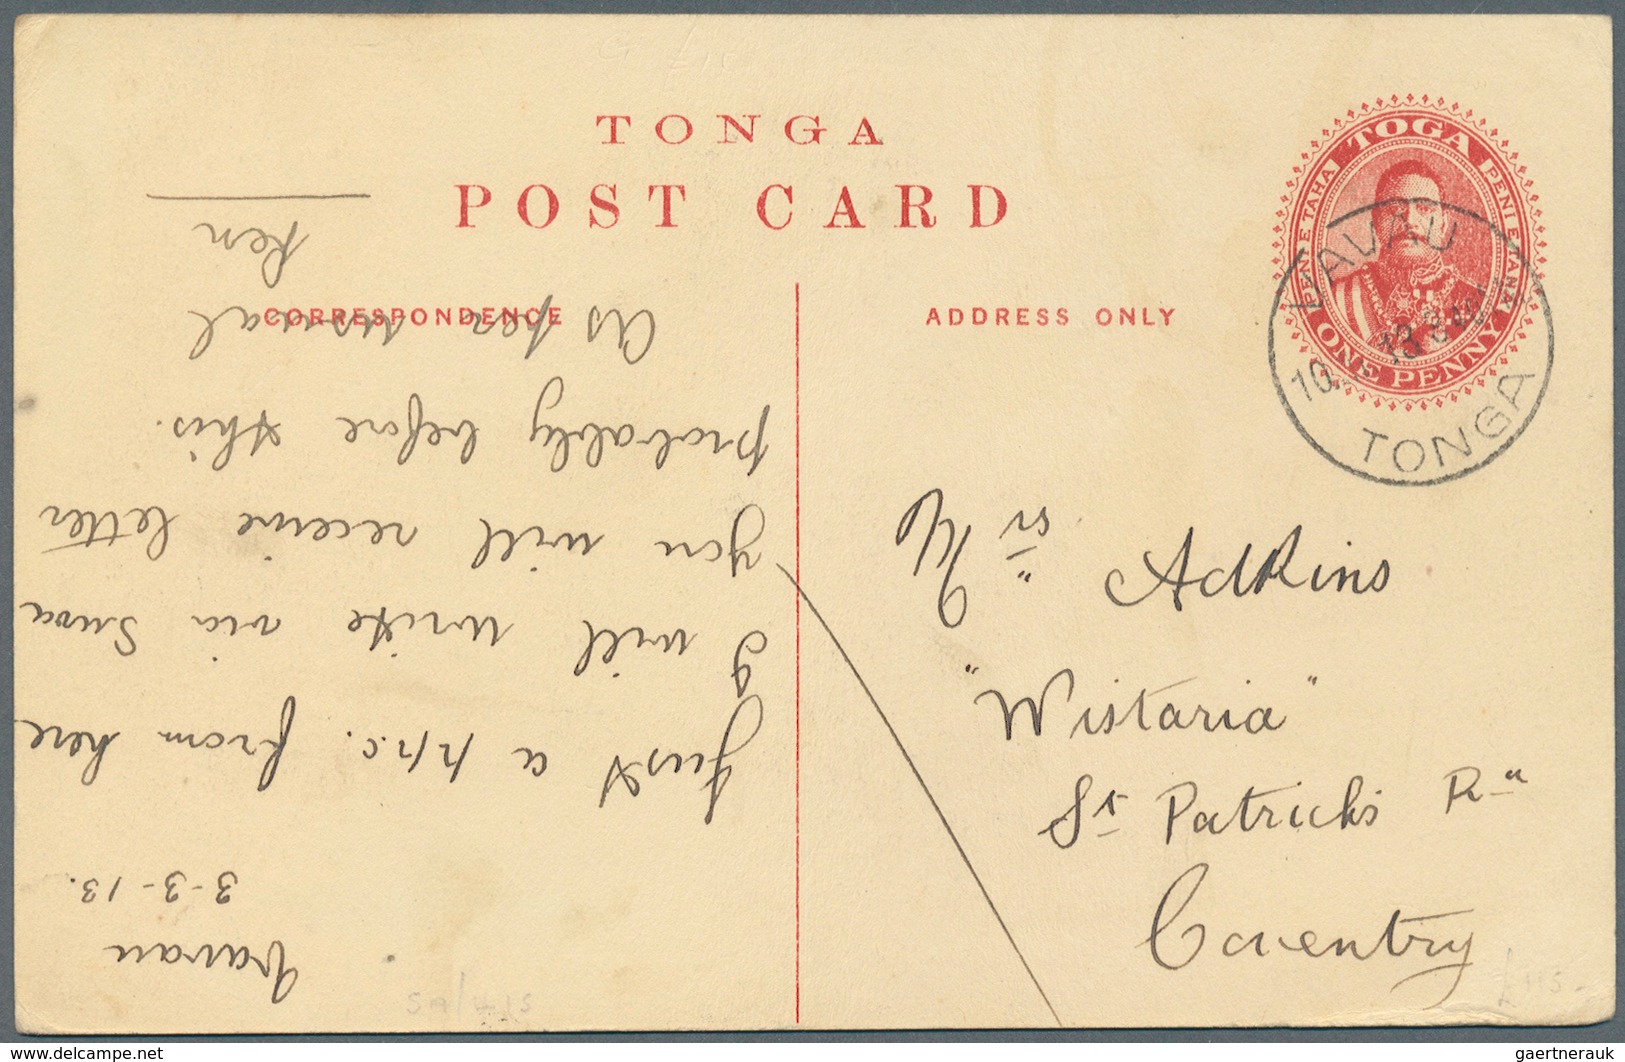 TONGA
POST CARD
CORRESPONDENCE
ADDRESS ONLY
TOGA
PENE TAHA
PENI E TAHA
ONE PENNY
VAVAU
TONGA
Mrs Adkins
"Wistaria"
St Patricks Rd
Coventry
Vavau
3-3-13.
Just a p.p.c. from here
I will write via Suva
you will receive letter
probably before this.
As per usual
Ken
delcampe.net
gaertnerauk